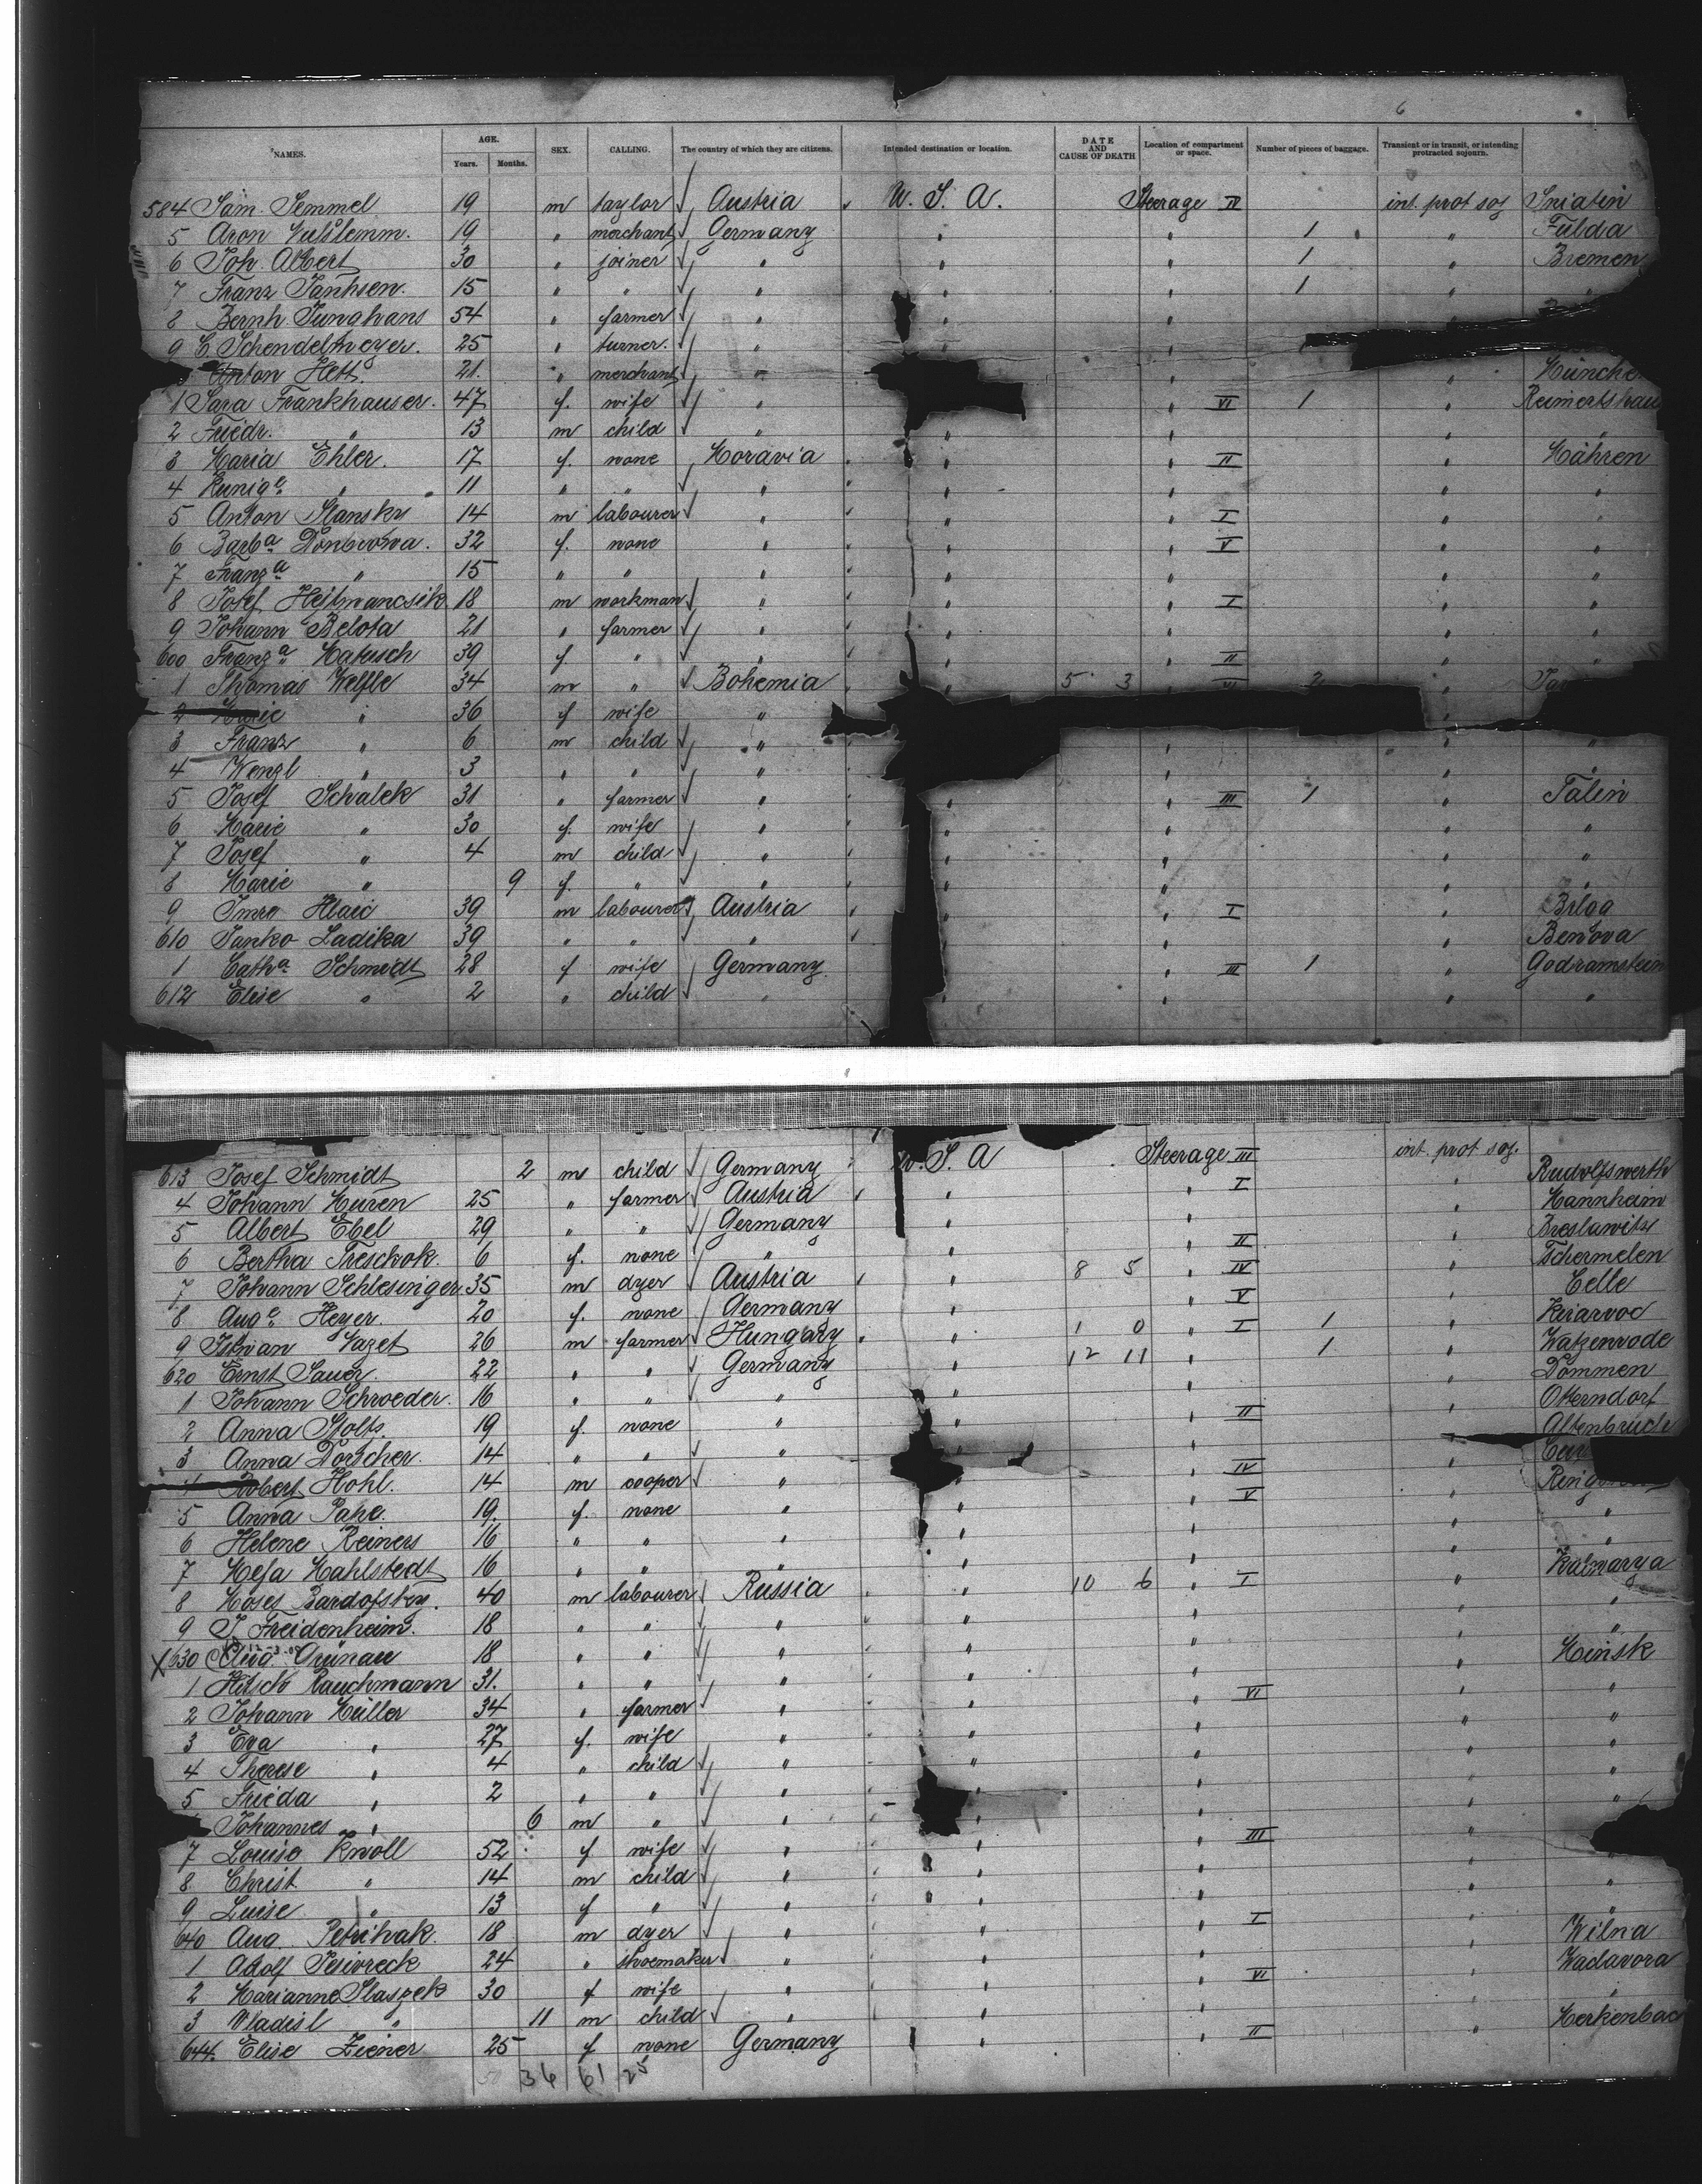 6
NAMES. AGE. Years. Months. SEX. CALLING. The country of which they are citizens. Intended destination or location. DATE AND CAUSE OF DEATH Location of compartment or space. Number of pieces of baggage. Transient or in transit, or intending protracted sojourn.
584 Sam. Semmel 19 m taylor Austria U. S. A. Steerage IV int. prot soj Sniatin
5 Aron 19 " merchant Germany " " 1 " Fulda
6 Joh. Albert 30 " joiner " " " 1 " Bremen
7 Franz Janhsen. 15 " " " " " 1 "
8 Bernh. Junghans 54 " farmer " " "
9 C. Schendelmeyer. 25 " turner. " "
Anton Hett 21. " merchant " "
1 Sara Frankhauser. 47 f. wife " " VI 1 "
2 Friedr. " 13 m child " " " " "
3 Maria Ehler. 17 f. none Moravia " " II " Mähren
4 Kunig.e " 11 " " " " " " "
5 Anton Stansky 14 m labourer " " " I " "
6 Barb.a 32 f. none " " " V " "
7 Franz.a " 15 " " " " " " "
8 Josef Hejtmancsik 18 m workman " " " I " "
9 Johann Belota 21 " farmer " " " " "
600 Franz.a Matusch 39 f. " " " " II " "
1 Thomas Welfle 34 m " Bohemia " 5 3 " VI 2 "
2 Marie " 36 f wife "
3 Franz " 6 m child " " " "
4 Wenzl " 3 " " " " " "
5 Josef Schalek 31 " farmer " " " III 1 " Talin
6 Marie " 30 f. wife " " " " "
7 Josef " 4 m child " " " " "
8 Marie " 9 f. " " " " " "
9 Imro Hlaic 39 m labourer Austria " " I "
610 Janko Ladika 39 " " " " " " Benova
1 Cath.a Schmidt 28 f wife Germany " " III 1 " Godramstein
612 Elise " 2 " child " " " " "
613 Josef Schmidt 2 m child Germany U. S. A Steerage III int. prot soj.
4 Johann Muren 25 " farmer Austria " " I " Rudolfswerth
5 Albert Ebel 29 " " Germany " " " Mannheim
6 Bertha Treschok. 6 f. none " " " II " Breslawitz
7 Johann Schlesinger 35 m dyer Austria " 8 5 " IV " Tschermelen
8 Aug.e Heyer. 20 f. none Germany " " V " Celle
9 Istvan Gazet 26 m farmer Hungary " 1 0 " I 1 "
620 Ernst Sauer. 22 " " Germany " 12 11 " 1 " Watzenrode
1 Johann Schroeder. 16 " " " " " " Dommen
2 Anna Stolts. 19 f. none " " " II " Otterndorf
3 Anna Dorscher. 14 " " " " " " Altenbruch
4 Robert Hohl. 14 m cooper " " IV "
5 Anna Pape. 19. f. none " " " V "
6 Helene Reiners 16 " " " " " " "
7 Mesa Mahlstedt 16 " " " " " " "
8 Moses Bardofsky. 40 m labourer Russia " 10 6 " I " Kalwarya
9 J. Freidenheim. 18 " " " " " " "
X 630 Aug. Grünau 18 " " " " " " "
1 Hitsch Rauchmann 31. " " " " " " Minsk
2 Johann Müller 34 " farmer " " " VI " "
3 Eva " 27 f. wife " " " " "
4 Therese " 4 " child " " " " "
5 Frieda " 2 " " " " " " "
Johannes " 6 m " " " " "
7 Louise Knoll 52 f wife " " " III "
8 Christ " 14 m child " " " " "
9 Luise " 13 f " " " " " "
640 Aug. Petrihak. 18 m dyer " " " I " Wilna
1 Adolf 24 " shoemaker " " " " Wadavora
2 Marianne Staszek 30 f wife " " " VI " "
3 Wladisl " 11 m child " " " "
644. Elise Ziener 25 f none Germany " " II " Merkenbac
50 36 61 25